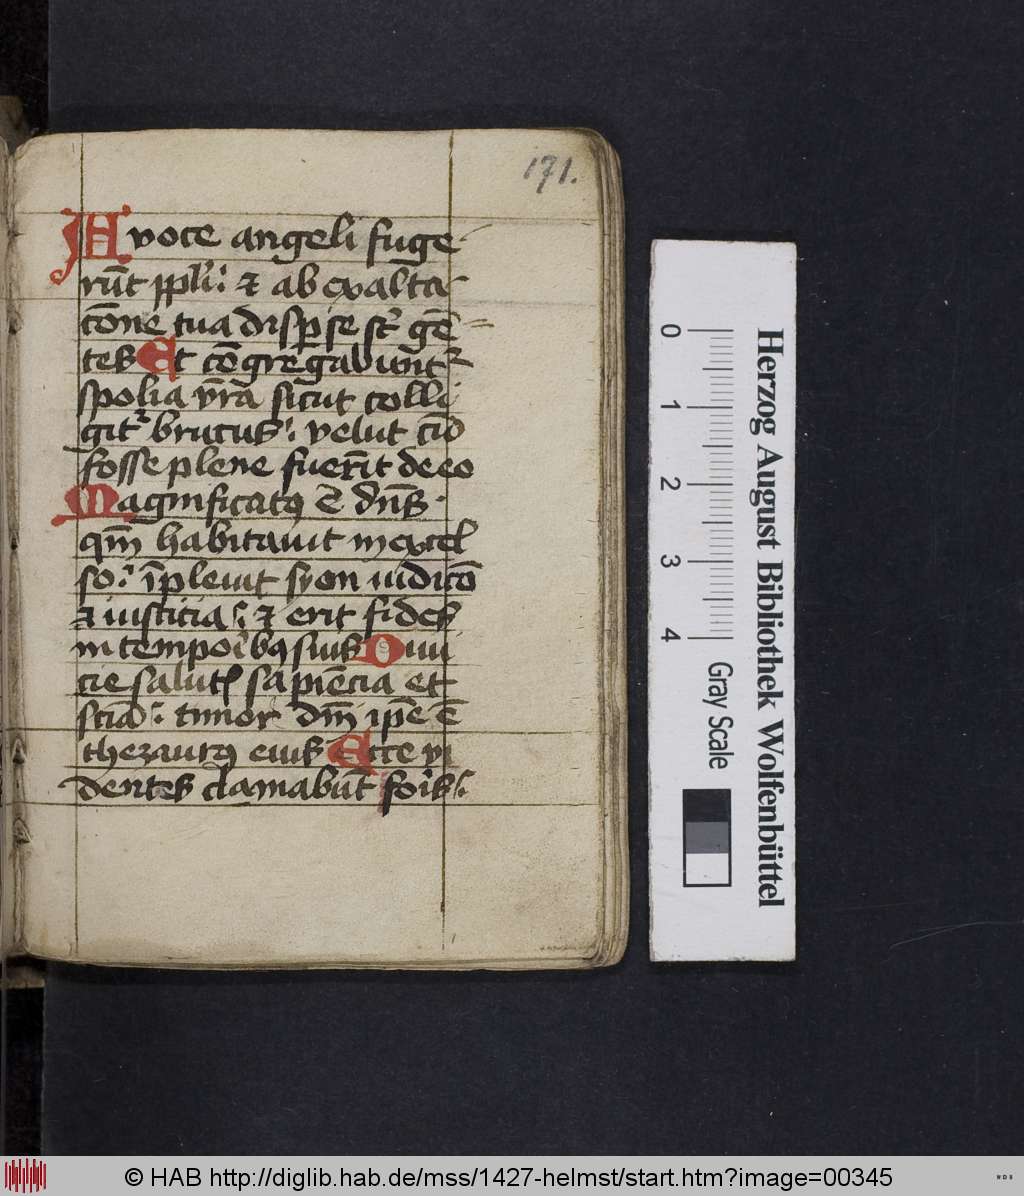 171.
A voce angeli fuge
rūt ppli: ⁊ ab exalta
cōne tua disperse st̄ gē
tes Et cōgregabūnt᷑
spolia vr̄a sicut colli
git᷑ brucus: velut cū
fosse plene fuerīt de eo
Magnificatꝰ ē dn̄s
qm̄ habitauit in excel
so: īpleuit syon iudicō
⁊ iusticia: ⁊ erit fides
in temporibꝰ suis Diui
cie salutꝭ sapiēcia et
scīa: timor dn̄i ipē ē
thezaurꝰ eius Ecce vi
dentes clamabūt foris:
0 1 2 3 4
Gray Scale
Herzog August Bibliothek Wolfenbüttel
© HAB http://diglib.hab.de/mss/1427-helmst/start.htm?image=00345